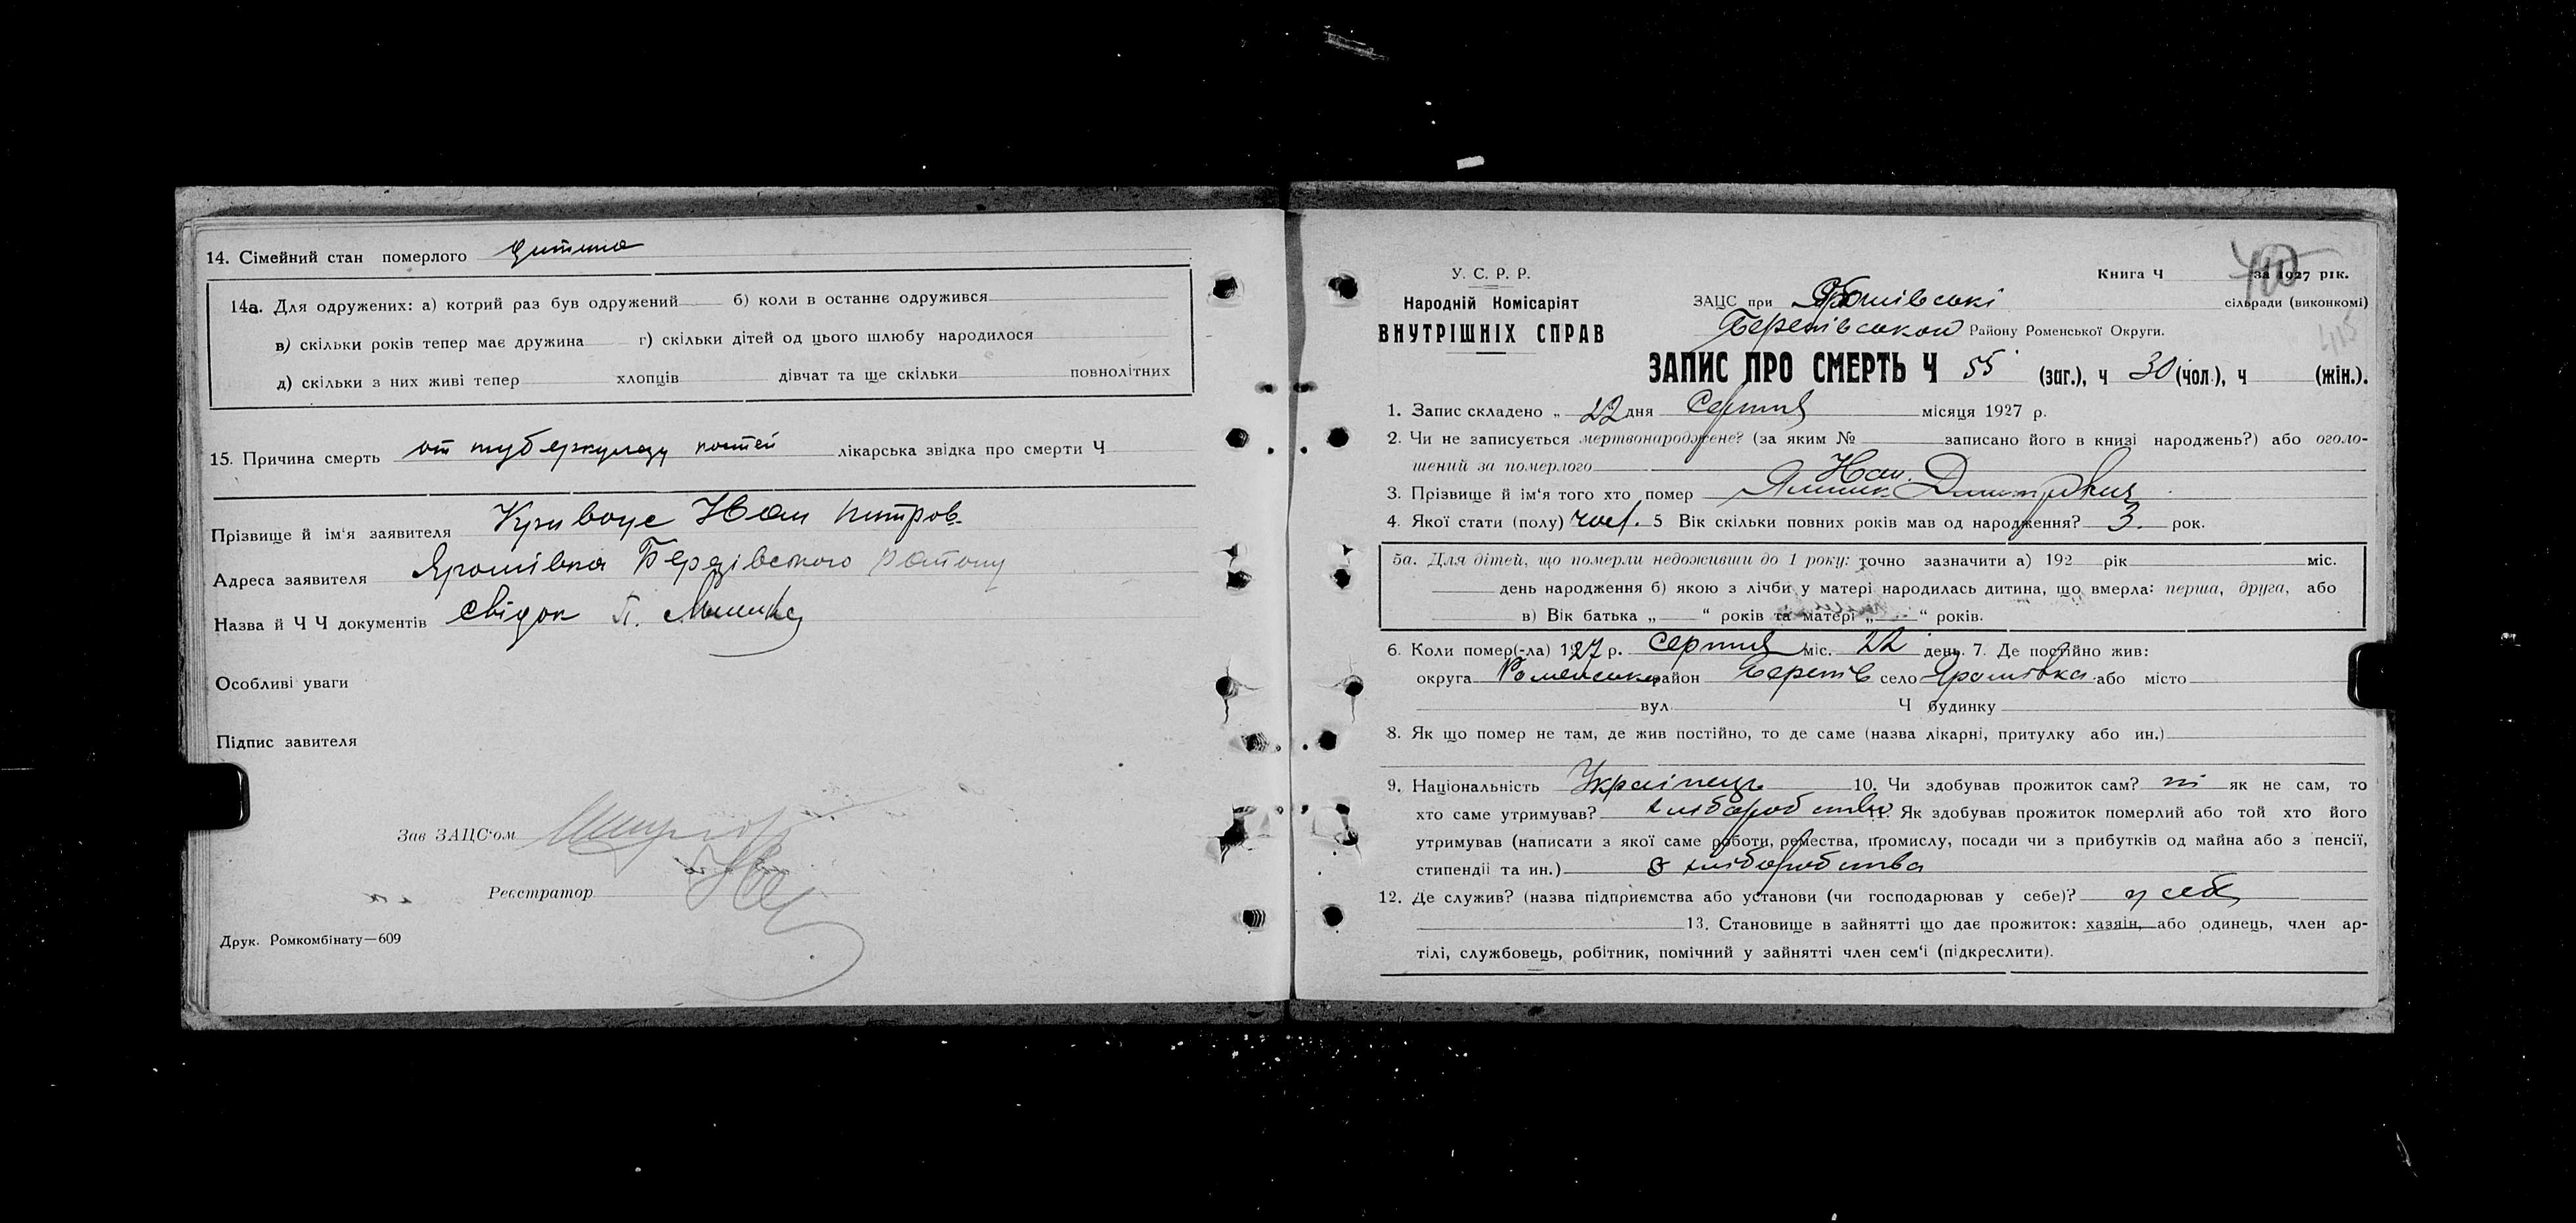 14. Сімейний стан померлого дитина
14а. Для одружених: а) котрий раз був одружений б) коли в останнє одружився
в) скільки років тепер має дружина г) скільки дітей од цього шлюбу народилося
д) скільки з них живі тепер хлопців дівчат та ще скільки повнолітних
15. Причина смерть от туберкульозу костей лікарська звідка про смерти Ч
Прізвище й ім'я заявителя Кривоус Иван
Адреса заявителя Ярошівка Березівського району
Назва й Ч Ч документів свідок П.
Особливі уваги
Підпис завителя
Зав ЗАЦС'ом
Реєстратор
Друк. Ромкомбінату—609
У. С. Р. Р.
Народній Комісаріят
ВНУТРІШНІХ СПРАВ
Книга Ч за 1927 рік.
ЗАЦС при сільради (виконкомі)
Району Роменської Округи.
415
ЗАПИС ПРО СМЕРТЬ Ч 55 (заг.), ч 30 (чол.), ч (жін.).
1. Запис складено „ 22 дня Серпня місяця 1927 р.
2. Чи не записується мертвонароджене? (за яким № записано його в книзі народжень?) або оголо-
шений за померлого
3. Прізвище й ім'я того хто помер Иван
4. Якої стати (полу) чол. 5 Вік скільки повних років мав од народження? 3 рок.
5а. Для дітей, що померли недоживши до 1 року: точно зазначити а) 192 рік міс.
день народження б) якою з лічби у матері народилась дитина, що вмерла: перша, друга, або
в) Вік батька „ “ років та матері „ “ років.
6. Коли помер(-ла) 1927 р. Серпня міс. 22 день. 7. Де постійно жив:
округа Роменська район село Ярошівка або місто
вул. Ч будинку
8. Як що помер не там, де жив постійно, то де саме (назва лікарні, притулку або ин.)
9. Національність Українець 10. Чи здобував прожиток сам? ні як не сам, то
хто саме утримував? 11. Як здобував прожиток померлий або той хто його
утримував (написати з якої саме роботи, ремества, промислу, посади чи з прибутків од майна або з пенсії,
стипендіі та ин.) з хліборобства
12. Де служив? (назва підприємства або установи (чи господарював у себе)? у себе
13. Становище в зайнятті що дає прожиток: хазяін, або одинець, член ар-
тілі, службовець, робітник, помічний у зайнятті член сем'і (підкреслити).